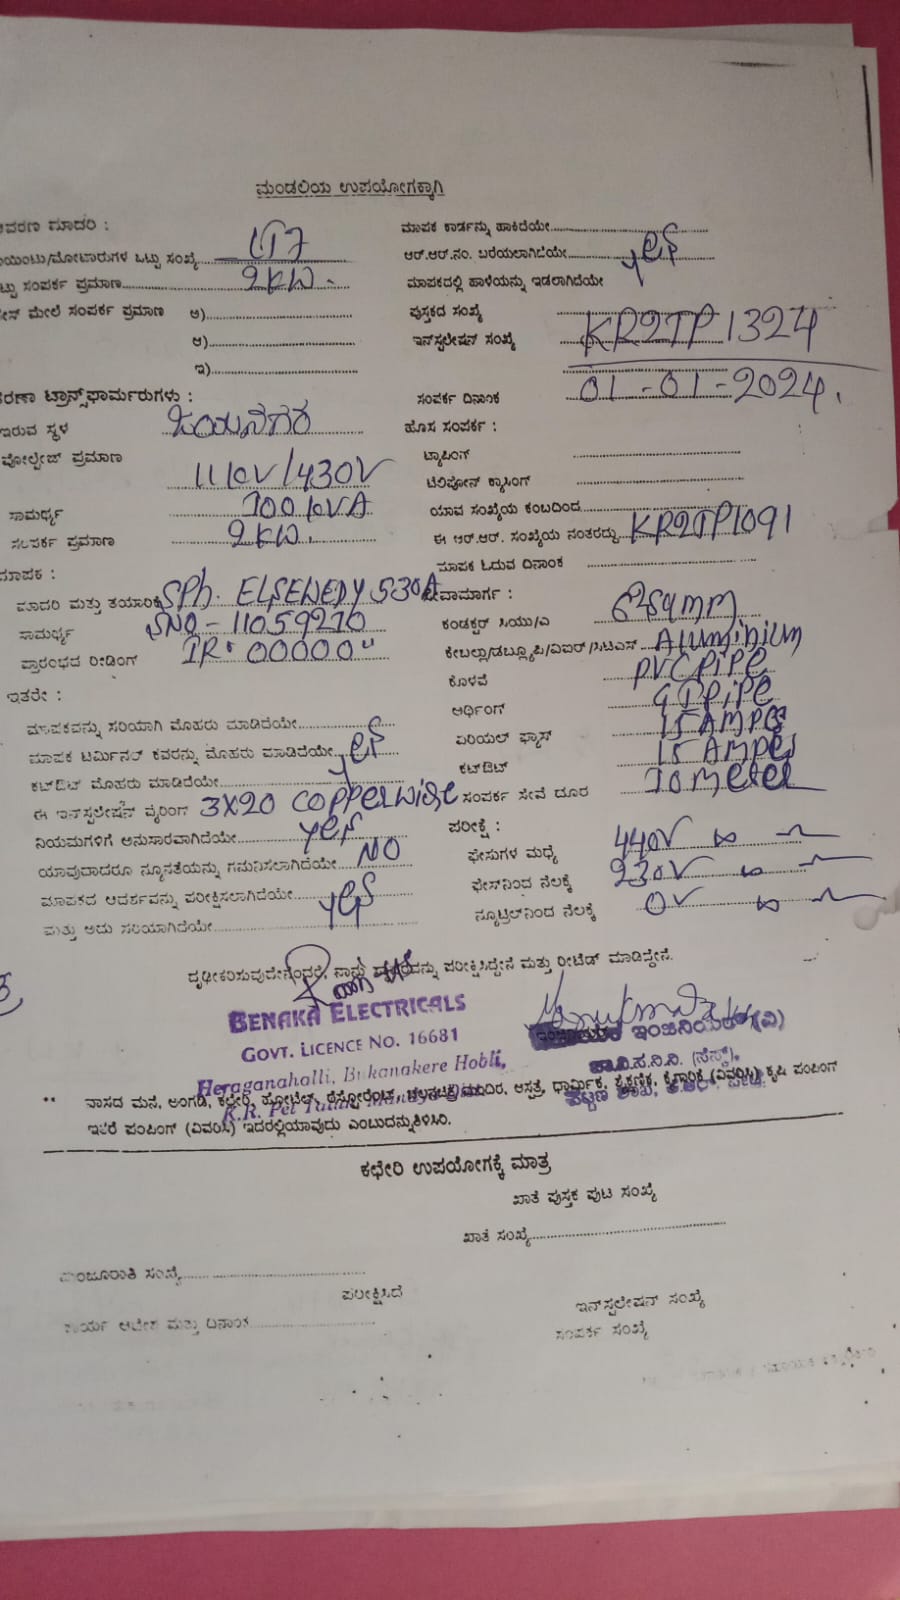 ಮಂಡಲಿಯ ಉಪಯೋಗಕ್ಕಾಗಿ
ಆವರಣ ಮಾದರಿ : LT7
ಪಾಯಿಂಟು/ಮೋಟಾರುಗಳ ಒಟ್ಟು ಸಂಖ್ಯೆ
ಒಟ್ಟು ಸಂಪರ್ಕ ಪ್ರಮಾಣ 2KW.
ಮೇಲೆ ಸಂಪರ್ಕ ಪ್ರಮಾಣ ಅ)
ಆ)
ಇ)
ಟ್ರಾನ್ಸ್‌ಫಾರ್ಮರುಗಳು :
ಇರುವ ಸ್ಥಳ ಜಯನಗರ
ವೋಲ್ಟೇಜ್ ಪ್ರಮಾಣ 11KV/430V
ಸಾಮರ್ಥ್ಯ 100KVA
ಸಂಪರ್ಕ ಪ್ರಮಾಣ 2KW.
ಮಾಪಕ :
ಮಾದರಿ ಮತ್ತು ತಯಾರಿಕೆ SPh. ELSEWEDY 530A
ಸಾಮರ್ಥ್ಯ SNO-11059270
ಪ್ರಾರಂಭದ ರೀಡಿಂಗ್ IR. 00000"
ಇತರೇ :
ಮಾಪಕವನ್ನು ಸರಿಯಾಗಿ ಮೊಹರು ಮಾಡಿದೆಯೇ
ಮಾಪಕ ಟರ್ಮಿನಲ್ ಕವರನ್ನು ಮೊಹರು ಮಾಡಿದೆಯೇ yes
ಕಟ್‌ಔಟ್ ಮೊಹರು ಮಾಡಿದೆಯೇ
ಈ ಇನ್‌ಸ್ಟಲೇಷನ್ ವೈರಿಂಗ್ 3X20 COPPER wire
ನಿಯಮಗಳಿಗೆ ಅನುಸಾರವಾಗಿದೆಯೇ yes
ಯಾವುದಾದರೂ ನ್ಯೂನತೆಯನ್ನು ಗಮನಿಸಲಾಗಿದೆಯೇ NO
ಮಾಪಕದ ಆದರ್ಶವನ್ನು ಪರೀಕ್ಷಿಸಲಾಗಿದೆಯೇ yes
ಮತ್ತು ಅದು ಸರಿಯಾಗಿದೆಯೇ
ಮಾಪಕ ಕಾರ್ಡನ್ನು ಹಾಕಿದೆಯೇ
ಆರ್.ಆರ್.ನಂ. ಬರೆಯಲಾಗಿದೆಯೇ yes
ಮಾಪಕದಲ್ಲಿ ಹಾಳೆಯನ್ನು ಇಡಲಾಗಿದೆಯೇ
ಪುಸ್ತಕದ ಸಂಖ್ಯೆ
ಇನ್‌ಸ್ಟಲೇಷನ್ ಸಂಖ್ಯೆ KR2TP1324
ಸಂಪರ್ಕ ದಿನಾಂಕ 01-01-2024.
ಹೊಸ ಸಂಪರ್ಕ :
ಟ್ಯಾಪಿಂಗ್
ಟೆಲಿಫೋನ್ ಕ್ರಾಸಿಂಗ್
ಯಾವ ಸಂಖ್ಯೆಯ ಕಂಬದಿಂದ
ಈ ಆರ್.ಆರ್. ಸಂಖ್ಯೆಯ ನಂತರದ್ದು KR2TP1091
ಮಾಪಕ ಓದುವ ದಿನಾಂಕ
ಸೇವಾಮಾರ್ಗ :
ಕಂಡಕ್ಟರ್ ಸಿಯು/ಎ
ಕೇಬಲ್ಲು/ಡಬ್ಲ್ಯೂಪಿ/ಎಐರ್/ಸಿಟಿಎಸ್ Aluminium
ಕೊಳವೆ PVC PIPE
ಅರ್ಥಿಂಗ್ GI PIPE
ಏರಿಯಲ್ ಫ್ಯೂಸ್ 15 AMPES
ಕಟ್‌ಔಟ್ 15 AMPES
ಸಂಪರ್ಕ ಸೇವೆ ದೂರ 10 meter
ಪರೀಕ್ಷೆ :
ಫೇಸುಗಳ ಮಧ್ಯೆ 440V
ಫೇಸ್‌ನಿಂದ ನೆಲಕ್ಕೆ 230V
ನ್ಯೂಟ್ರಲ್‌ನಿಂದ ನೆಲಕ್ಕೆ 0V
ದೃಢೀಕರಿಸುವುದೇನೆಂದರೆ, ನಾನು ಪರೀಕ್ಷಿಸಿದ್ದೇನೆ ಮತ್ತು ರೀಟೆಡ್ ಮಾಡಿದ್ದೇನೆ.
BENAKA ELECTRICALS
GOVT. LICENCE NO. 16681
Heraganahalli, Bukanakere Hobli,
K.R. Pet Taluk, Mandya
ಇಂಜಿನಿಯರ್ (ವಿ)
** ವಾಸದ ಮನೆ, ಅಂಗಡಿ, ಕಛೇರಿ, ಹೋಟೆಲ್, ರೆಸ್ಟೋರೆಂಟ್, ಚಲನಚಿತ್ರ ಮಂದಿರ, ಆಸ್ಪತ್ರೆ, ಧಾರ್ಮಿಕ, ಶೈಕ್ಷಣಿಕ, ಕೈಗಾರಿಕೆ (ವಿವರಿಸಿ) ಕೃಷಿ ಪಂಪಿಂಗ್
ಇತರೆ ಪಂಪಿಂಗ್ (ವಿವರಿಸಿ) ಇದರಲ್ಲಿಯಾವುದು ಎಂಬುದಮ್ನತಿಳಿಸಿರಿ.
ಕಛೇರಿ ಉಪಯೋಗಕ್ಕೆ ಮಾತ್ರ
ಖಾತೆ ಪುಸ್ತಕ ಪುಟ ಸಂಖ್ಯೆ
ಖಾತೆ ಸಂಖ್ಯೆ
ಮಂಜೂರಾತಿ ಸಂಖ್ಯೆ
ಪರೀಕ್ಷಿಸಿದೆ
ಕಾರ್ಯ ಆದೇಶ ಮತ್ತು ದಿನಾಂಕ
ಇನ್‌ಸ್ಟಲೇಷನ್ ಸಂಖ್ಯೆ
ಸಂಪರ್ಕ ಸಂಖ್ಯೆ